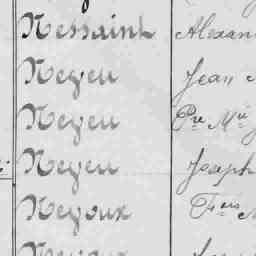 Nessaint Alexan
Neyeu Jean
Neyeu Pre Mie
Neyeu Joseph
Neyoux Fçois